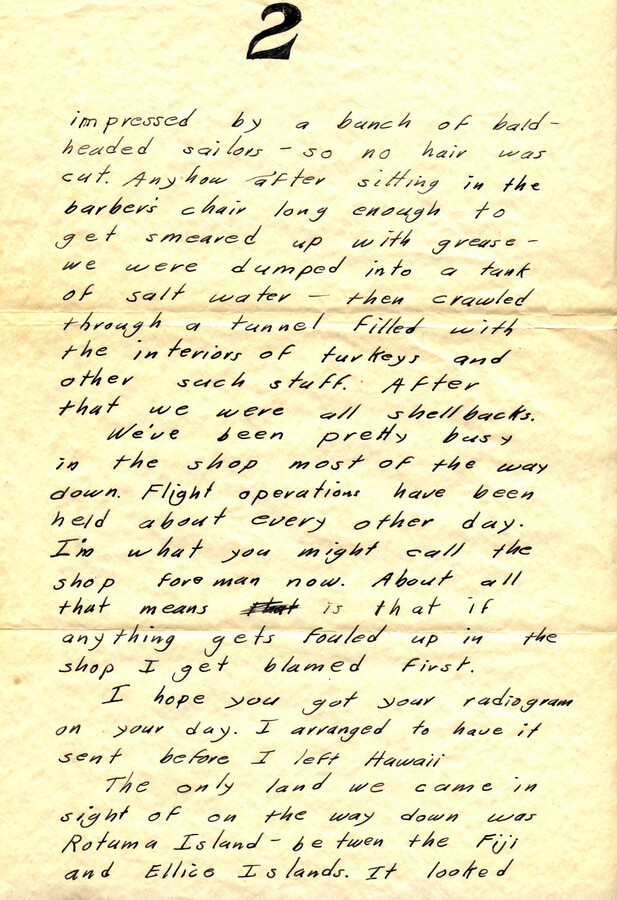 2
impressed by a bunch of bald-
headed sailors - so no hair was
cut. Anyhow after sitting in the
barber's chair long enough to
get smeared up with grease -
we were dumped into a tank
of salt water - then crawled
through a tunnel filled with
the interiors of turkeys and
other such stuff. After
that we were all shellbacks.
We've been pretty busy
in the shop most of the way
down. Flight operations have been
held about every other day.
I'm what you might call the
shop foreman now. About all
that means that is that if
anything gets fouled up in the
shop I get blamed first.
I hope you got your radiogram
on your day. I arranged to have it
sent before I left Hawaii
The only land we came in
sight of on the way down was
Rotuma Island - be twen the Fiji
and Ellice Islands. It looked